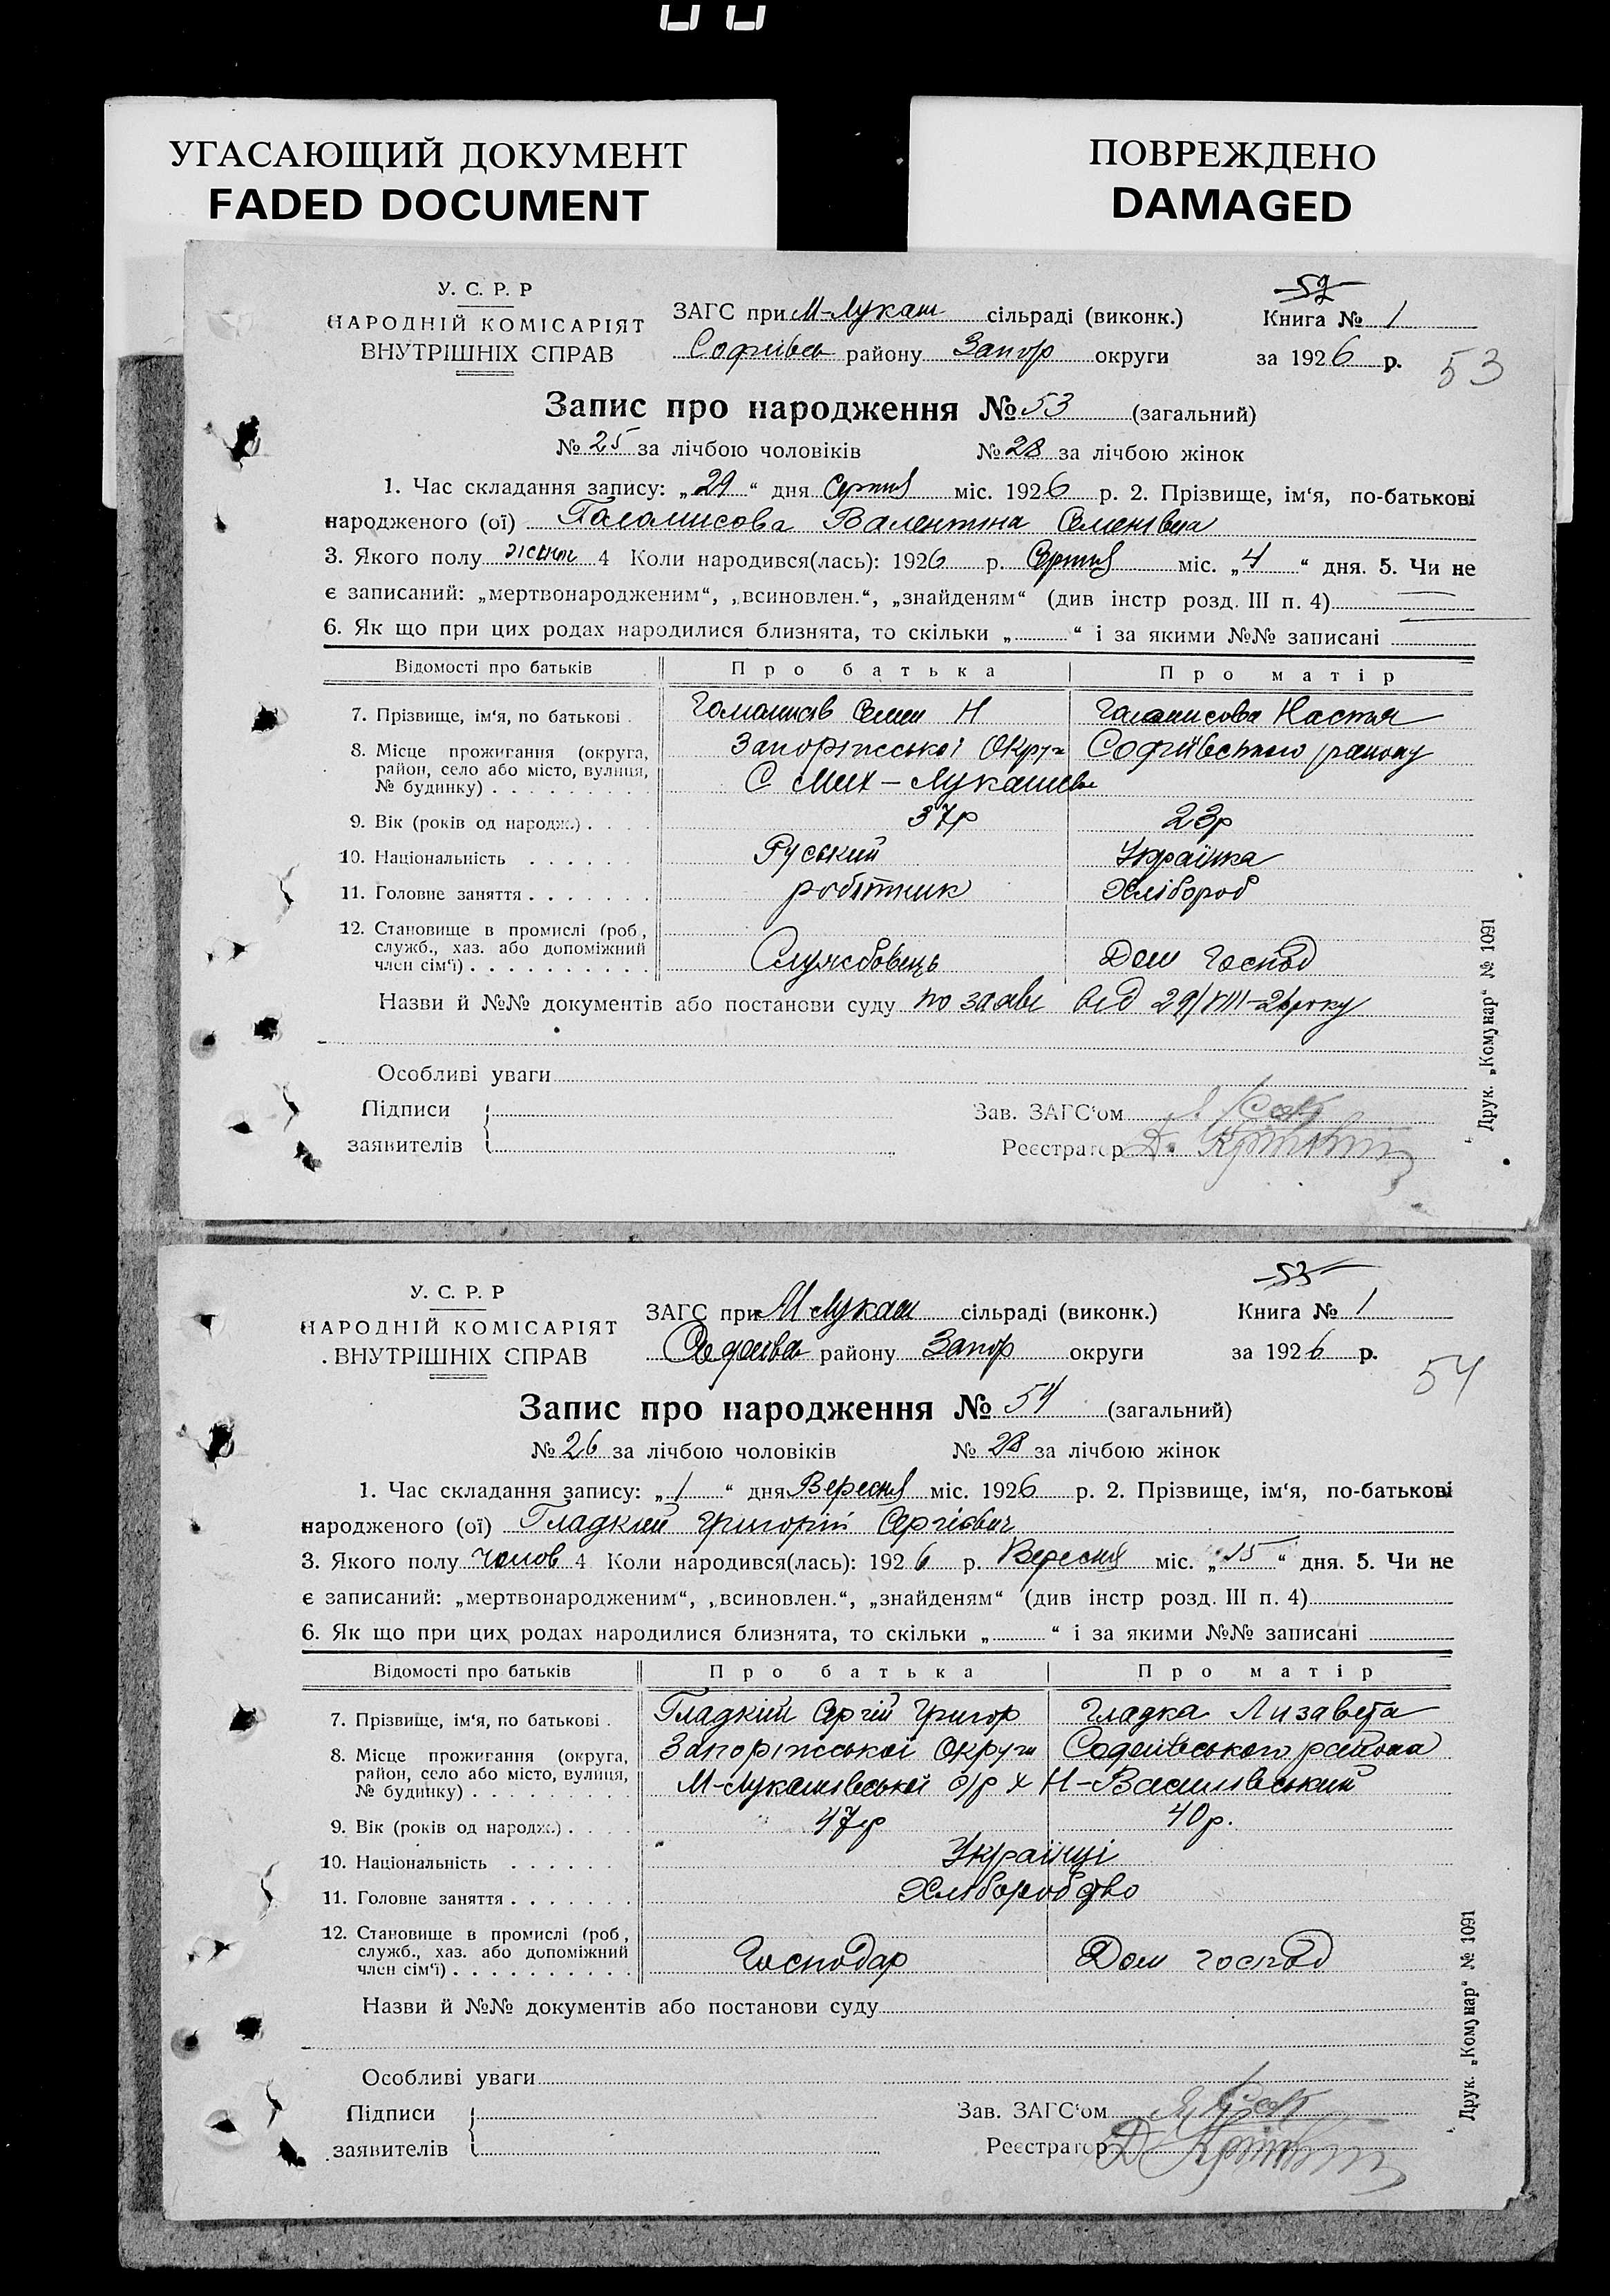 УГАСАЮЩИЙ ДОКУМЕНТ
FADED DOCUMENT
ПОВРЕЖДЕНО
DAMAGED
У. С. Р. Р
НАРОДНІЙ КОМІСАРІЯТ
ВНУТРІШНІХ СПРАВ
ЗАГС при М-Лукаш сільраді (виконк.)
Софиівсь району Запор округи
52
Книга № 1
за 1926 р.
53
Запис про народження № 53 (загальний)
№ 25 за лічбою чоловіків № 28 за лічбою жінок
1. Час складання запису: „29“ дня Серпня міс. 1926 р. 2. Прізвище, ім‘я, по-батькові
народженого (ої) Валентіна Семенівна
3. Якого полу жіноч 4 Коли народився(лась): 1926 р. Серпня міс. „4“ дня. 5. Чи не
є записаний: „мертвонародженим“, „всиновлен.“, „знайденям“ (див інстр розд. III п. 4)
6. Як що при цих родах народилися близнята, то скільки „ “ і за якими №№ записані
Відомості про батьків Про батька Про матір
7. Прізвище, ім‘я, по батькові . Семен Н Настя
8. Місце прожигання (округа, Запоріжської Округи Софиївського району
район, село або місто, вулиця, С Мих - Лукашеве
№ будинку) . . . . . . . . .
9. Вік (років од народж.) . . . . 37р 23р
10. Національність . . . . . . Руський Українка
11. Головне заняття . . . . . . . робітник Хлібороб
12. Становище в промислі (роб,
служб., хаз. або допоміжний
член сім‘ї) . . . . . . . . . . Службовець Дом Господ
Назви й №№ документів або постанови суду по заяве від 29/VIII-26 року
Особливі уваги
Підписи
заявителів
Зав. ЗАГС‘ом
Реєстратор
Друк. „Комунар“ № 1091
У. С. Р. Р
НАРОДНІЙ КОМІСАРІЯТ
ВНУТРІШНІХ СПРАВ
ЗАГС при М Лукаш сільраді (виконк.)
району Запор округи
53
Книга № 1
за 1926 р.
54
Запис про народження № 54 (загальний)
№ 26 за лічбою чоловіків № 28 за лічбою жінок
1. Час складання запису: „1“ дня Вересня міс. 1926 р. 2. Прізвище, ім‘я, по-батькові
народженого (ої) Гладкий Григорій Сергієвич
3. Якого полу чолов 4 Коли народився(лась): 1926 р. Вересня міс. „15“ дня. 5. Чи не
є записаний: „мертвонародженим“, „всиновлен.“, „знайденям“ (див інстр розд. III п. 4)
6. Як що при цих родах народилися близнята, то скільки „ “ і за якими №№ записані
Відомості про батьків Про батька Про матір
7. Прізвище, ім‘я, по батькові . Гладкій Сергій Григор Гладка Лизавета
8. Місце прожигання (округа, Запоріжської Округи Софиівського района
район, село або місто, вулиця, М-Лукашівської с/р х Н-Василівський
№ будинку) . . . . . . . . .
9. Вік (років од народж.) . . . . 47р 40р.
10. Національність . . . . . . Українці
11. Головне заняття . . . . . . . Хліборобство
12. Становище в промислі (роб,
служб., хаз. або допоміжний
член сім‘ї) . . . . . . . . . . Господар Дом господ
Назви й №№ документів або постанови суду
Особливі уваги
Підписи
заявителів
Зав. ЗАГС‘ом
Реєстратор
Друк. „Комунар“ № 1091